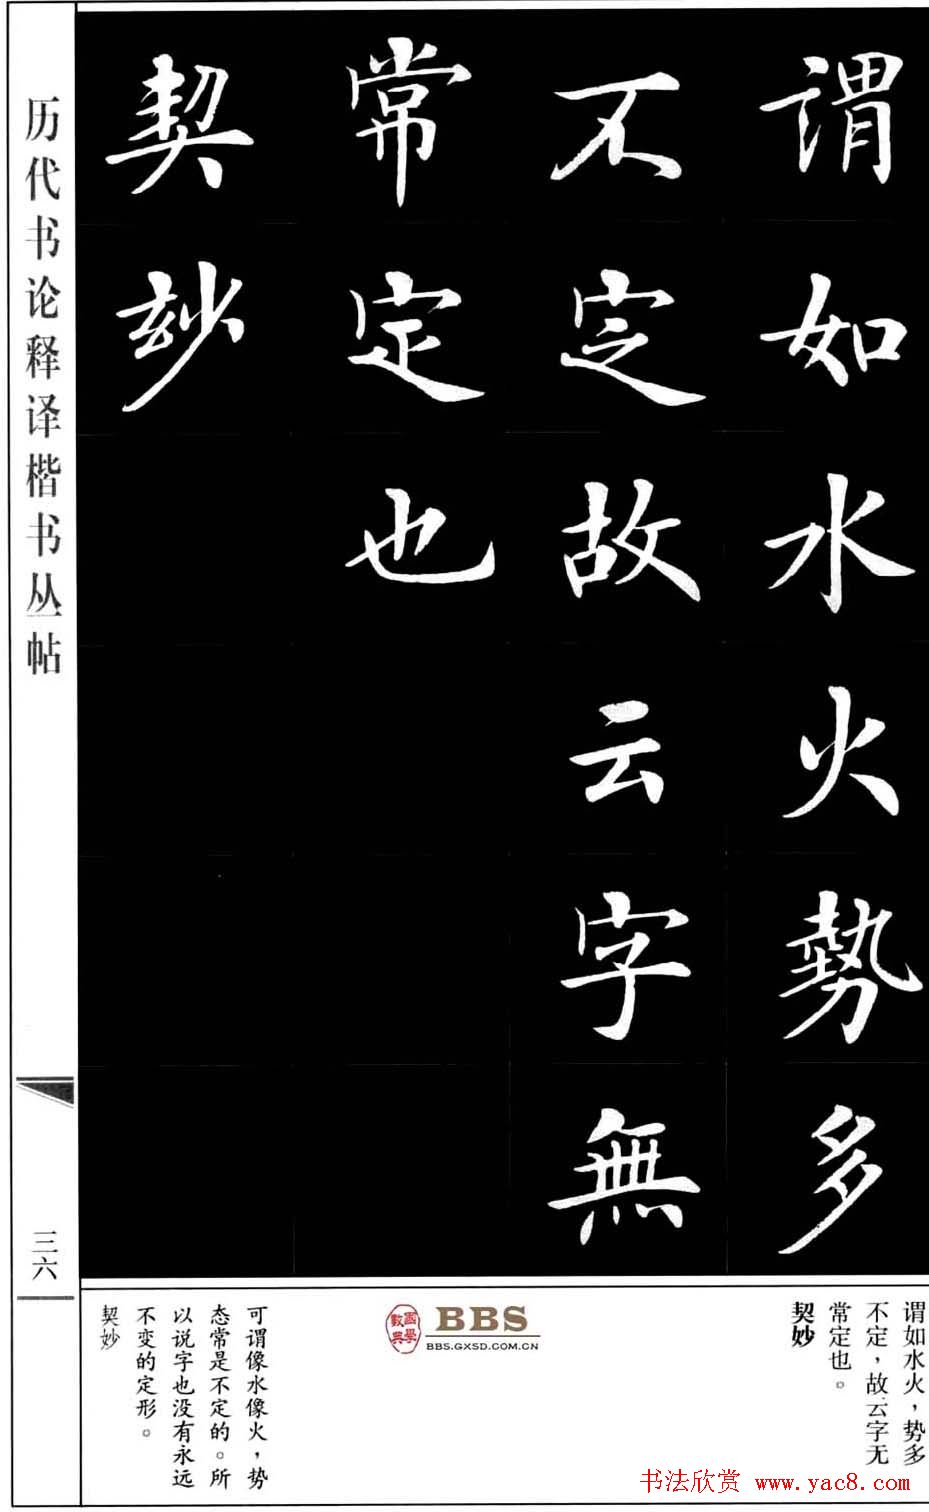 谓如水火勢多
不定故云字無
常定也
契妙
历代书论释译楷书丛帖
三六
谓如水火，势多
不定，故云字无
常定也。
契妙
國學
數典
BBS
BBS.GXSD.COM.CN
可谓像水像火，势
态常是不定的。所
以说字也没有永远
不变的定形。
契妙
书法欣赏 www.yac8.com